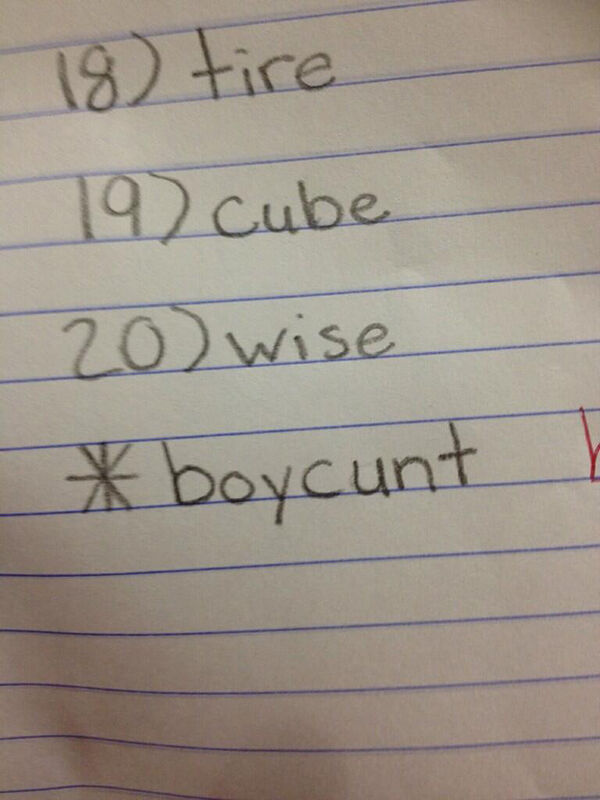 18) tire
19) cube
20) wise
* boycunt